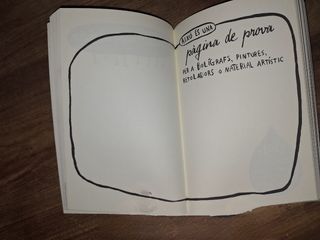 AIXÒ ÉS UNA
pàgina de prova
PER A BOLÍGRAFS, PINTURES,
RETOLADORS O MATERIAL ARTÍSTIC